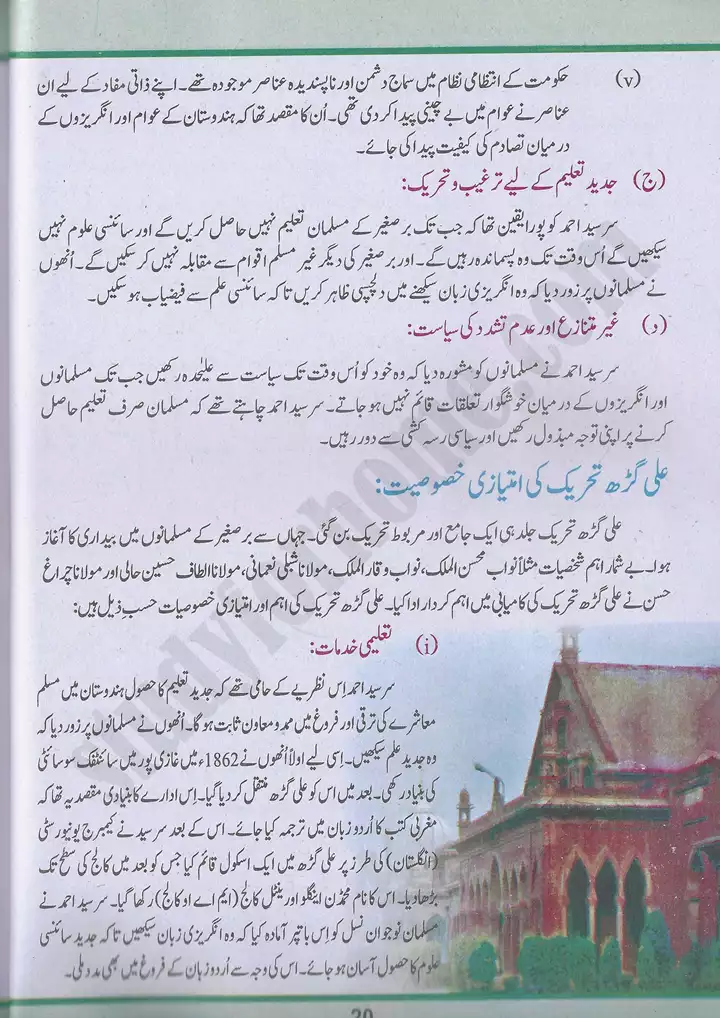 (v) حکومت کے انتظامی نظام میں سماج دشمن اور ناپسندیدہ عناصر موجود تھے۔ اپنے ذاتی مفاد کے لیے ان
عناصر نے عوام میں بے چینی پیدا کر دی تھی۔ اُن کا مقصد تھا کہ ہندوستان کے عوام اور انگریزوں کے
درمیان تصادم کی کیفیت پیدا کی جائے۔
(ج) جدید تعلیم کے لیے ترغیب و تحریک:
سر سید احمد کو پورا یقین تھا کہ جب تک بر صغیر کے مسلمان تعلیم نہیں حاصل کریں گے اور سائنسی علوم نہیں
سیکھیں گے اُس وقت تک وہ پسماندہ رہیں گے۔ اور بر صغیر کی دیگر غیر مسلم اقوام سے مقابلہ نہیں کر سکیں گے۔ اُنھوں
نے مسلمانوں پر زور دیا کہ وہ انگریزی زبان سیکھنے میں دلچسپی ظاہر کریں تاکہ سائنسی علم سے فیضیاب ہو سکیں۔
(د) غیر متنازع اور عدم تشدد کی سیاست:
سر سید احمد نے مسلمانوں کو مشورہ دیا کہ وہ خود کو اُس وقت تک سیاست سے علیٰحدہ رکھیں جب تک مسلمانوں
اور انگریزوں کے درمیان خوشگوار تعلقات قائم نہیں ہو جاتے۔ سر سید احمد چاہتے تھے کہ مسلمان صرف تعلیم حاصل
کرنے پر اپنی توجہ مبذول رکھیں اور سیاسی رسہ کشی سے دور رہیں۔
علی گڑھ تحریک کی امتیازی خصوصیت:
علی گڑھ تحریک جلد ہی ایک جامع اور مربوط تحریک بن گئی۔ جہاں سے بر صغیر کے مسلمانوں میں بیداری کا آغاز
ہوا۔ بے شمار اہم شخصیات مثلاً نواب محسن الملک، نواب وقار الملک، مولانا شبلی نعمانی، مولانا الطاف حسین حالی اور مولانا چراغ
حسن نے علی گڑھ تحریک کی کامیابی میں اہم کردار ادا کیا۔ علی گڑھ تحریک کی اہم اور امتیازی خصوصیات حسبِ ذیل ہیں:
(i) تعلیمی خدمات:
سر سید احمد اِس نظریے کے حامی تھے کہ جدید تعلیم کا حصول ہندوستان میں مسلم
معاشرے کی ترقی اور فروغ میں ممد و معاون ثابت ہو گا۔ اُنھوں نے مسلمانوں پر زور دیا کہ
وہ جدید علم سیکھیں۔ اِسی لیے اولاً اُنھوں نے 1862ء میں غازی پور میں سائنٹفک سوسائٹی
کی بنیاد رکھی۔ بعد میں اس کو علی گڑھ منتقل کر دیا گیا۔ اِس ادارے کا بنیادی مقصد یہ تھا کہ
مغربی کتب کا اُردو زبان میں ترجمہ کیا جائے۔ اس کے بعد سر سید نے کیمبرج یونیورسٹی
(انگلستان) کی طرز پر علی گڑھ میں ایک اسکول قائم کیا جس کو بعد میں کالج کی سطح تک
بڑھا دیا۔ اس کا نام محمڈن اینگلو اورینٹل کالج (ایم اے او کالج) رکھا گیا۔ سر سید احمد نے
مسلمان نوجوان نسل کو اِس بات پر آمادہ کیا کہ وہ انگریزی زبان سیکھیں تاکہ جدید سائنسی
علوم کا حصول آسان ہو جائے۔ اس کی وجہ سے اُردو زبان کے فروغ میں بھی مدد ملی۔